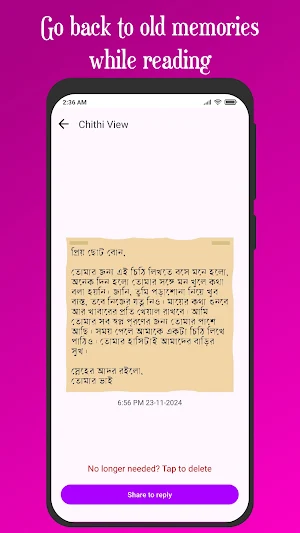 Go back to old memories
while reading
2:36 AM
Chithi View
প্রিয় ছোট বোন,
তোমার জন্য এই চিঠি লিখতে বসে মনে হলো,
অনেক দিন হলো তোমার সঙ্গে মন খুলে কথা
বলা হয়নি। জানি, তুমি পড়াশোনা নিয়ে খুব
ব্যস্ত, তবে নিজের যত্ন নিও। মায়ের কথা শুনবে
আর খাবারের প্রতি খেয়াল রাখবে। আমি
তোমার সব স্বপ্ন পূরণের জন্য তোমার পাশে
আছি। সময় পেলে আমাকে একটা চিঠি লিখে
পাঠিও। তোমার হাসিটাই আমাদের বাড়ির
সুখ।
স্নেহের আদর রইলো,
তোমার ভাই
6:56 PM 23-11-2024
No longer needed? Tap to delete
Share to reply